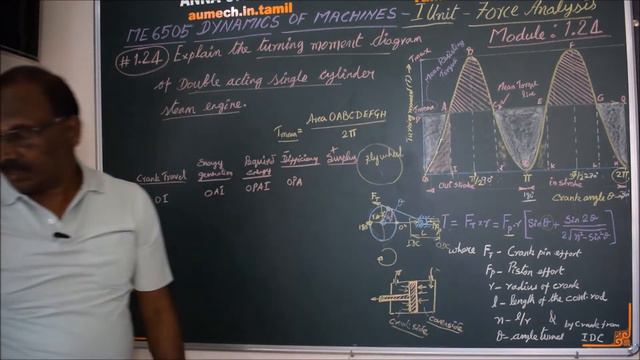 ANNA
aumech.in.tamil
ME6505 DYNAMICS OF MACHINES - I Unit - Force Analysis
Module: 1.24
#1.24 Explain the turning moment diagram
of Double acting single cylinder
steam engine.
Tmean = Area OABCDEFGH
2π
Crank Travel
Energy generation
Required energy
Deficiency
+ Surplus
OI OAI OPAI OPA
fly wheel
Mean Resisting Torque
Turning Moment (or) Torque
Mean Torque line
Tmean
A B C D E F G
Out stroke
In stroke
Crank angle θ
π 2π
FT
IDC ODC
T = FT × r = FP · r [Sinθ + Sin 2θ / 2√n²-Sin²θ]
where FT - Crank pin effort
FP - Piston effort
r - radius of crank
l - length of the con. rod
n - l/r &
θ - angle turned by crank from IDC
Crank side
Cover side